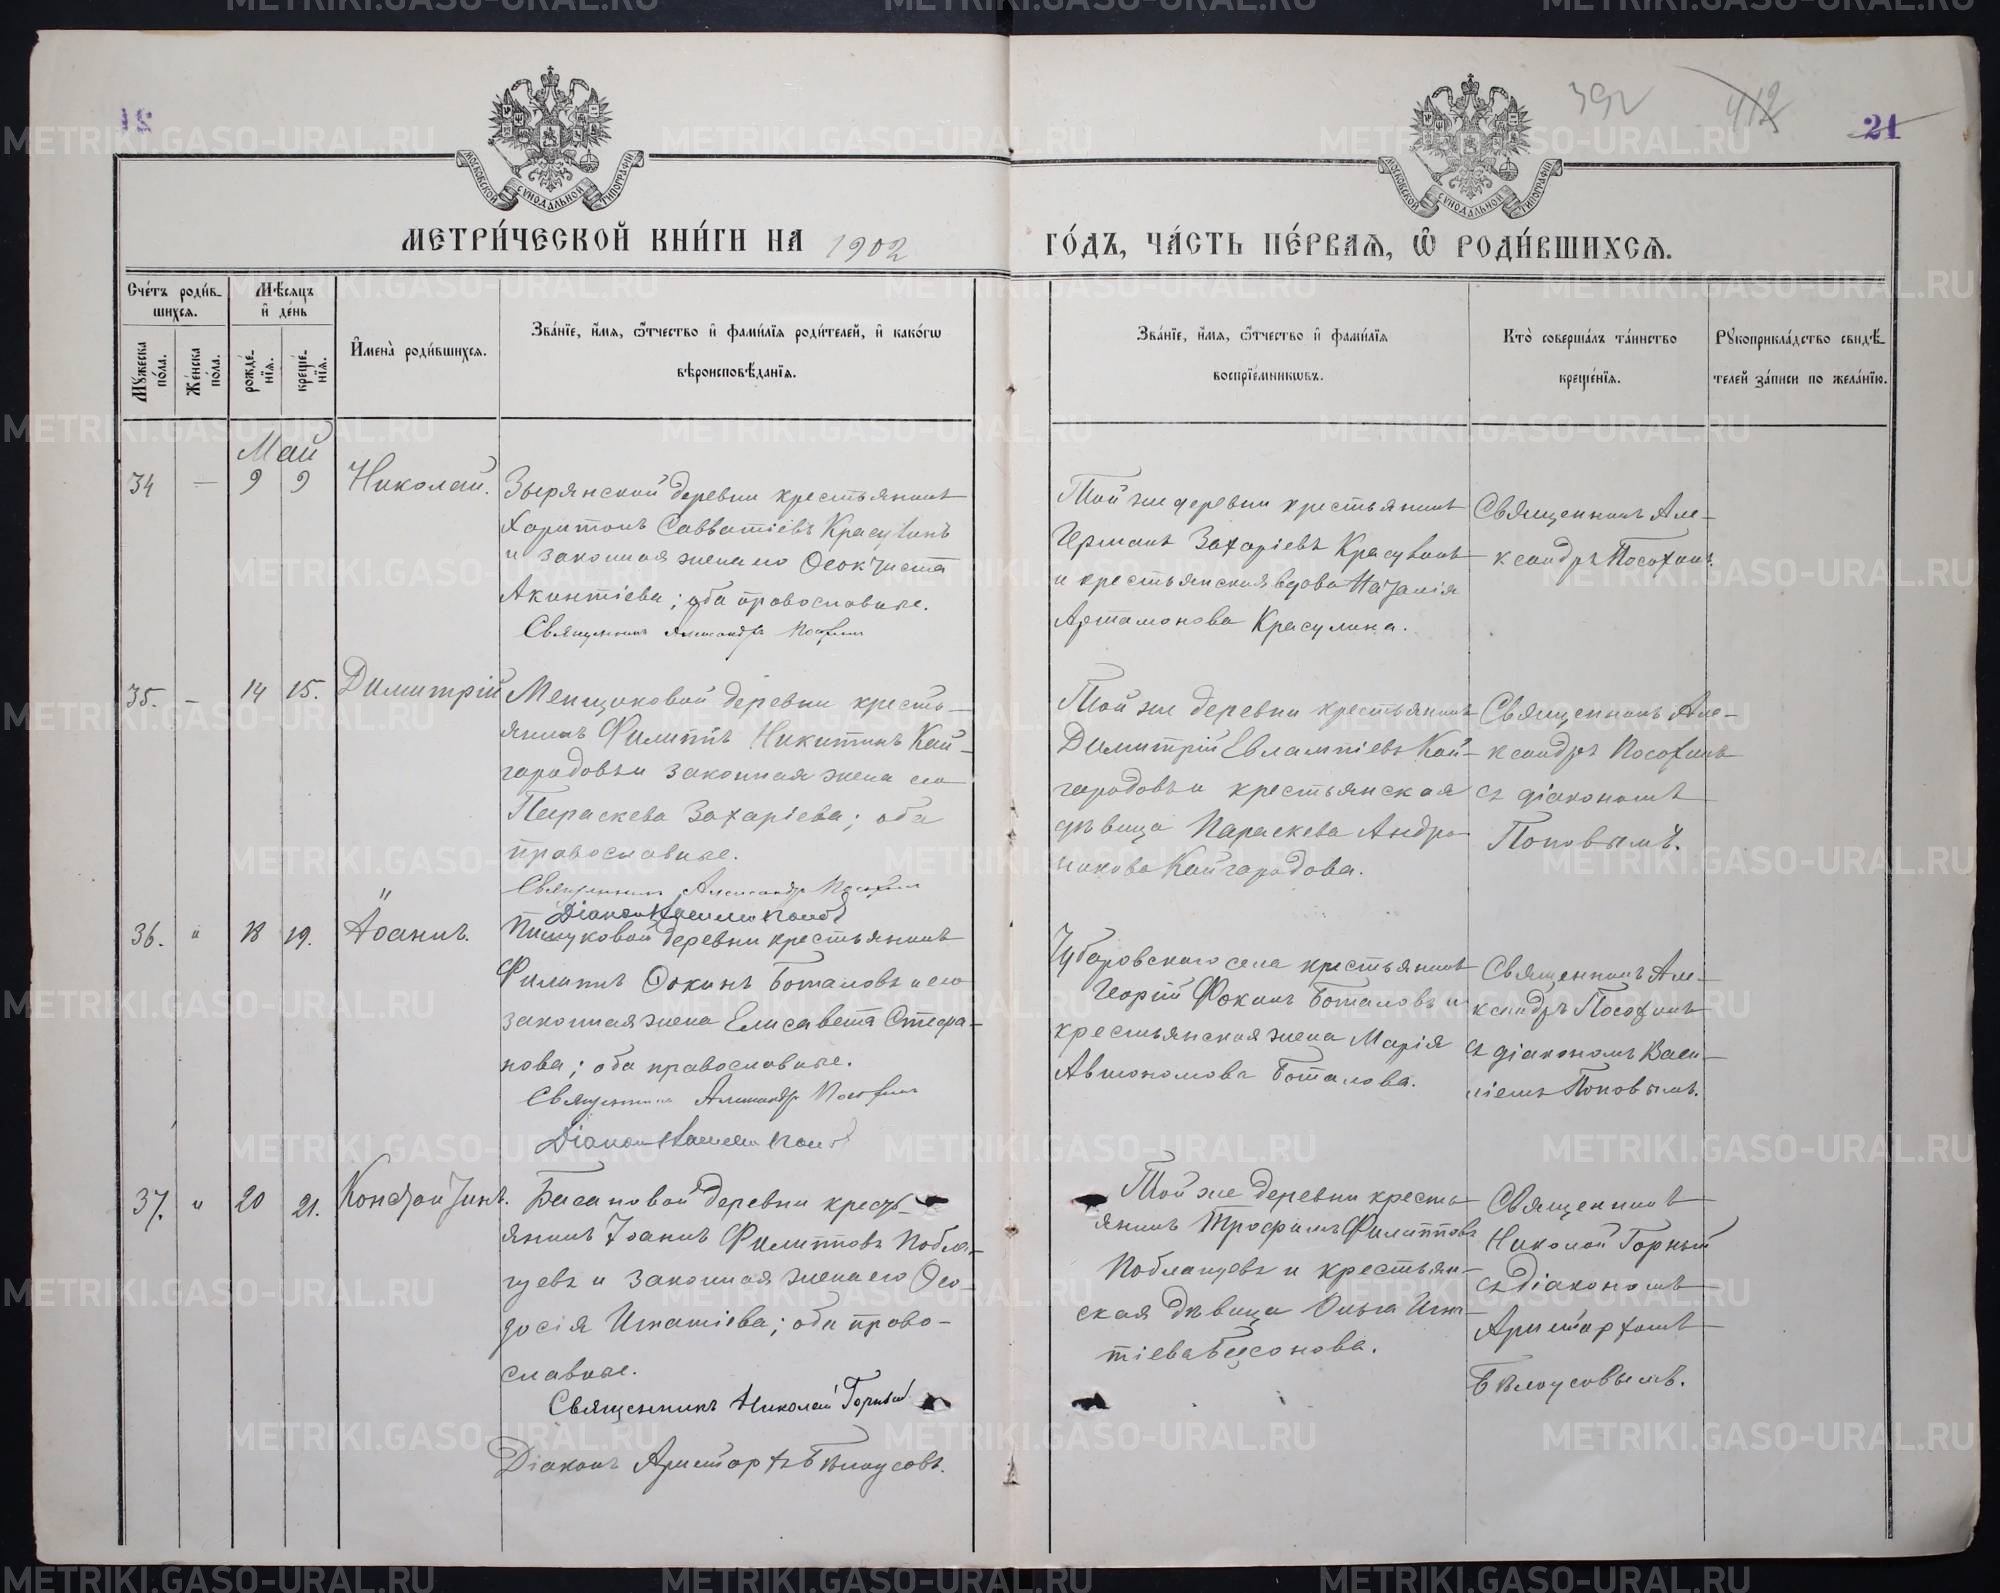 392
412
21
МОСКОВСКОЙ СѴНОДАЛЬНОЙ ТИПОГРАФІИ
МОСКОВСКОЙ СѴНОДАЛЬНОЙ ТИПОГРАФІИ
МЕТРИ́ЧЕСКОЙ КНИ́ГИ НА 1902
ГО́ДЪ, ЧА́СТЬ ПЕ́РВАѦ, Ѡ҆ РОДИ́ВШИХСѦ.
Сче́тъ роди́в-
шихсѧ.
Мѣ́сѧцъ
и҆ де́нь
Мꙋжеска по́ла.
Же́нска по́ла.
рожде́-
нїѧ.
креще́-
нїѧ.
И҆мена̀ роди́вшихсѧ.
Зва́нїе, и҆́мѧ, ѻ҆́тчество и҆ фами́лїѧ роди́телей, и҆ како́гѡ
вѣроисповѣ́данїѧ.
Зва́нїе, и҆́мѧ, ѻ҆́тчество и҆ фами́лїѧ
воспрїе́мникѡвъ.
Кто̀ соверша́лъ та́инство
креще́нїѧ.
Рꙋкоприкла́дство свидѣ́-
телей за́писи по жела́нїю.
Май
34 — 9 9 Николай.
Зырянской деревни крестьянинъ
Харитонъ Савватіевъ Красулинъ
и законная жена его Ѳеоктиста
Акинтіева; оба православные.
Священникъ Александръ Посохинъ
Той же деревни крестьянинъ
Германъ Захаріевъ Красулинъ
и крестьянская вдова Наталія
Артамонова Красулина.
Священникъ Але-
ксандръ Посохинъ.
35. — 14 15. Димитрій
Менщиковой деревни кресть-
янинъ Филиппъ Никитинъ Кай-
городовъ и законная жена его
Параскева Захаріева; оба
православные.
Священникъ Александръ Посохинъ
Діаконъ Василій Поповъ
Той же деревни крестьянинъ
Димитрій Евлампіевъ Кай-
городовъ и крестьянская
дѣвица Параскева Андро-
никова Кайгородова.
Священникъ Але-
ксандръ Посохинъ
съ діакономъ
Поповымъ.
36. " 18 19. Іоаннъ.
деревни крестьянинъ
Филиппъ Ѳокинъ Боталовъ и его
законная жена Елисавета Стефа-
нова; оба православные.
Священникъ Александръ Посохинъ
Діаконъ Василій Поповъ
Чубаровскаго села крестьянинъ
Георгій Фокинъ Боталовъ и
крестьянская жена Марія
Автономова Боталова.
Священникъ Але-
ксандръ Посохинъ
съ діакономъ Васи-
ліемъ Поповымъ.
37. " 20 21. Константинъ.
деревни кресть-
янинъ Іоаннъ Филипповъ Побла-
гуевъ и законная жена его Ѳео-
досія Игнатіева; оба право-
славные.
Священникъ Николай Горный
Діаконъ Аристархъ Бѣлоусовъ.
Той же деревни кресть-
янинъ Трофимъ Филипповъ
Поблагуевъ и крестьян-
ская дѣвица Ольга Игна-
тіева
Священникъ
Николай Горный
съ Діакономъ
Аристархомъ
Бѣлоусовымъ.
METRIKI.GASO-URAL.RU